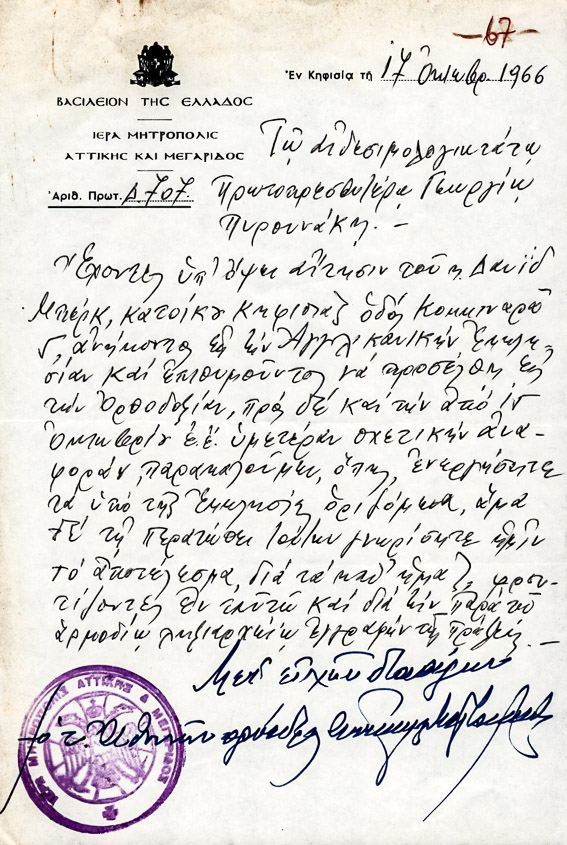 —67—
Ἐν Κηφισίᾳ τῇ 17 Ὀκτωβρ. 1966
ΒΑΣΙΛΕΙΟΝ ΤΗΣ ΕΛΛΑΔΟΣ
ΙΕΡΑ ΜΗΤΡΟΠΟΛΙΣ
ΑΤΤΙΚΗΣ ΚΑΙ ΜΕΓΑΡΙΔΟΣ
Ἀριθ. Πρωτ. Δ. 707.
Τῷ αἰδεσιμολογιωτάτῳ
Πρωτοπρεσβυτέρῳ Γεωργίῳ
Πυρουνάκῃ. —
Ἔχοντες ὑπ' ὄψει αἴτησιν τοῦ κ. Δαυΐδ
Μπέρκ, κατοίκου Κηφισιᾶς ὁδός Κομνηναρᾶ
5, ἀνήκοντος εἰς τήν Ἀγγλικανικήν Ἐκκλη-
σίαν καί ἐπιθυμοῦντος νά προσέλθῃ εἰς
τήν Ὀρθοδοξίαν, πρός δέ καί τήν ἀπό
Ὀκτωβρίου ἐ.ἔ. ὑμετέραν σχετικήν ἀνα-
φοράν, παρακαλοῦμεν, ὅπως ἐνεργήσητε
τά ὑπό τῆς Ἐκκλησίας ὁριζόμενα, ἅμα
δέ τῇ περατώσει τούτων γνωρίσητε ἡμῖν
τό ἀποτέλεσμα, διά τά καθ' ἡμᾶς, φρον-
τίζοντες ἐν ταυτῷ καί διά τήν παρά τῷ
ἁρμοδίῳ ληξιαρχείῳ ἐγγραφήν τῆς πράξεως. —
Μετ' εὐχῶν διαπύρων
ΙΕΡΑ ΜΗΤΡΟΠΟΛΙΣ ΑΤΤΙΚΗΣ & ΜΕΓΑΡΙΔΟΣ